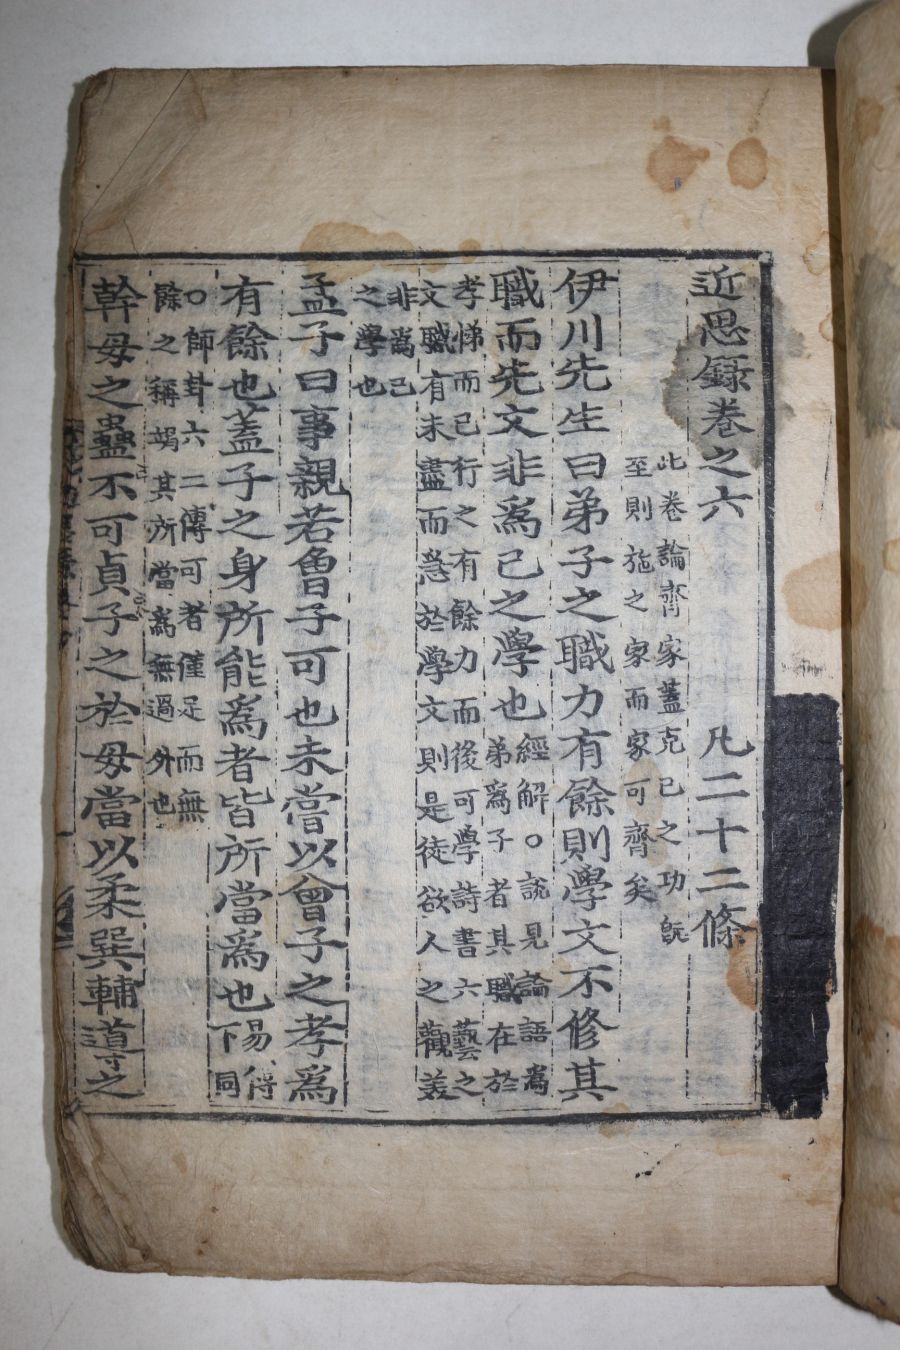 近思錄卷之六　凡二十二條
此卷論齊家蓋克己之功既
至則施之家而家可齊矣
伊川先生曰弟子之職力有餘則學文不修其
職而先文非爲己之學也
經解○說見論語爲
弟爲子者其職在於
孝悌而已行之有餘力而後可學詩書六藝之
文職有未盡而急於學文則是徒欲人之觀美
非爲己
之學也
孟子曰事親若魯子可也未嘗以曾子之孝爲
有餘也蓋子之身所能爲者皆所當爲也
易傳
下同
○師卦六二傳可者僅足而無
餘之稱竭其所當爲無過外也
幹母之蠱不可貞子之於母當以柔巽輔導之